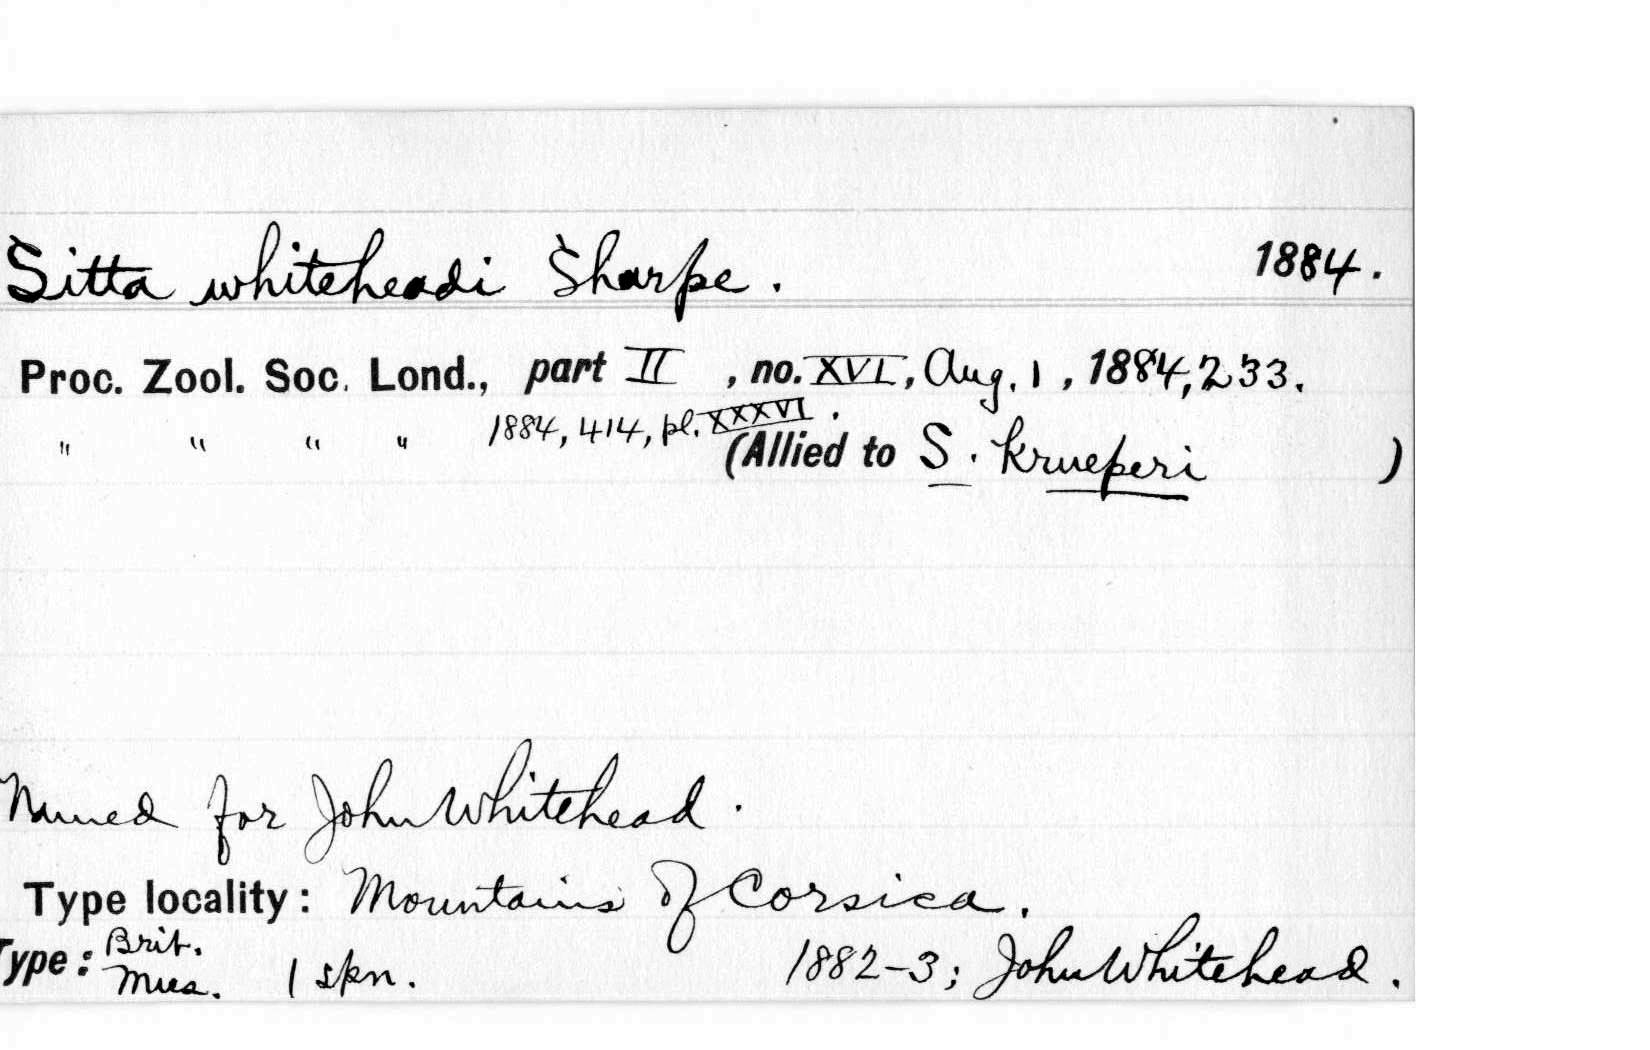 Sitta whiteheadi Sharpe. 1884.
Proc. Zool. Soc. Lond., part II, no. XVI, Aug. 1, 1884, 233.
" " " " 1884, 414, pl. XXXVI.
(Allied to S. krueperi)
Named for John Whitehead.
Type locality: Mountains of Corsica.
Type: Brit. Mus. 1 spn. 1882-3; John Whitehead.